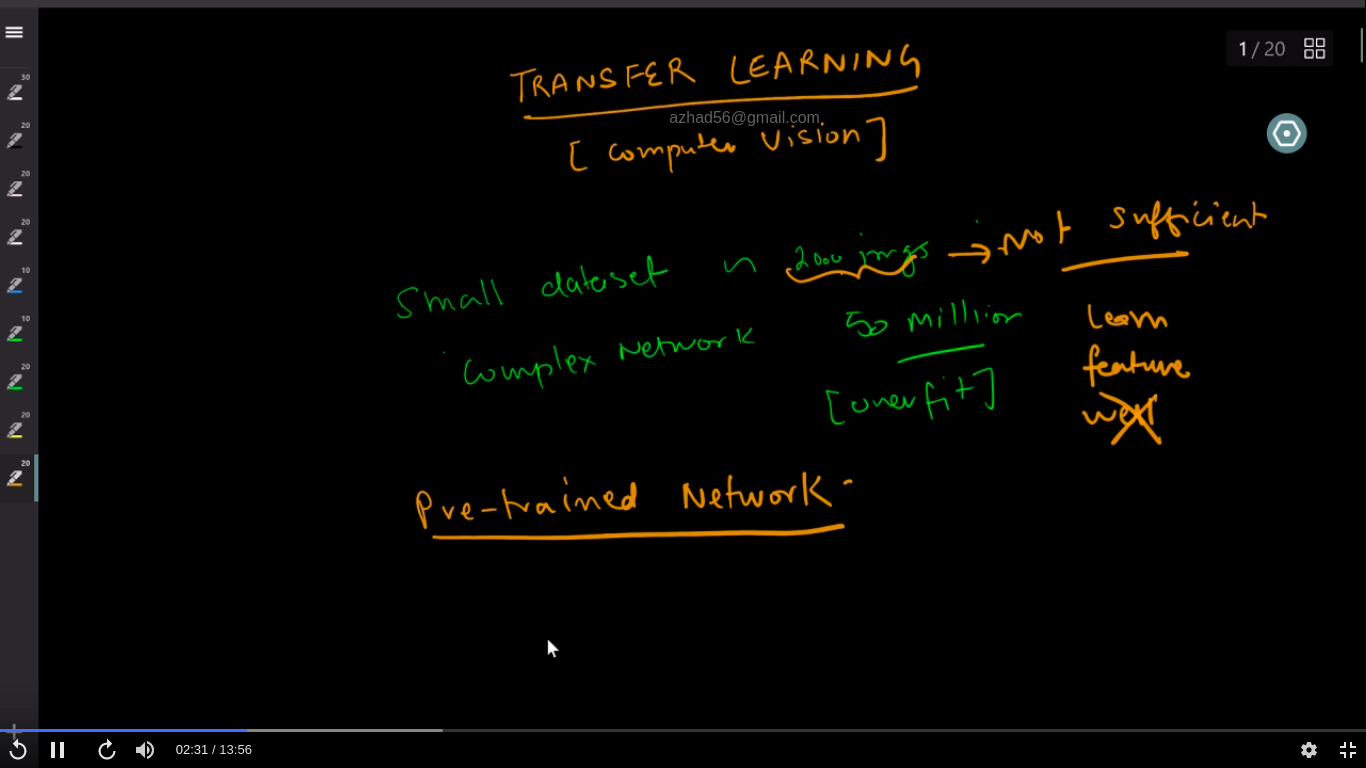 1 / 20
30
20
20
20
10
10
20
20
20
TRANSFER LEARNING
azhad56@gmail.com
[ Computer Vision ]
Small dataset ~ 2000 imgs → Not Sufficient
Complex Network 50 Million
[overfit]
learn
feature
well
Pre-trained Network
02:31 / 13:56